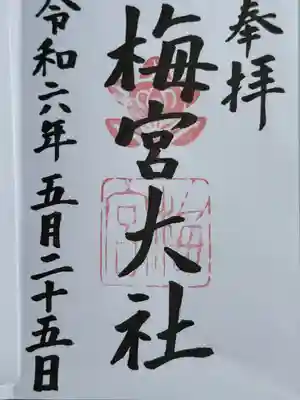 奉拝
梅宮大社
梅宮
令和六年 五月二十五日